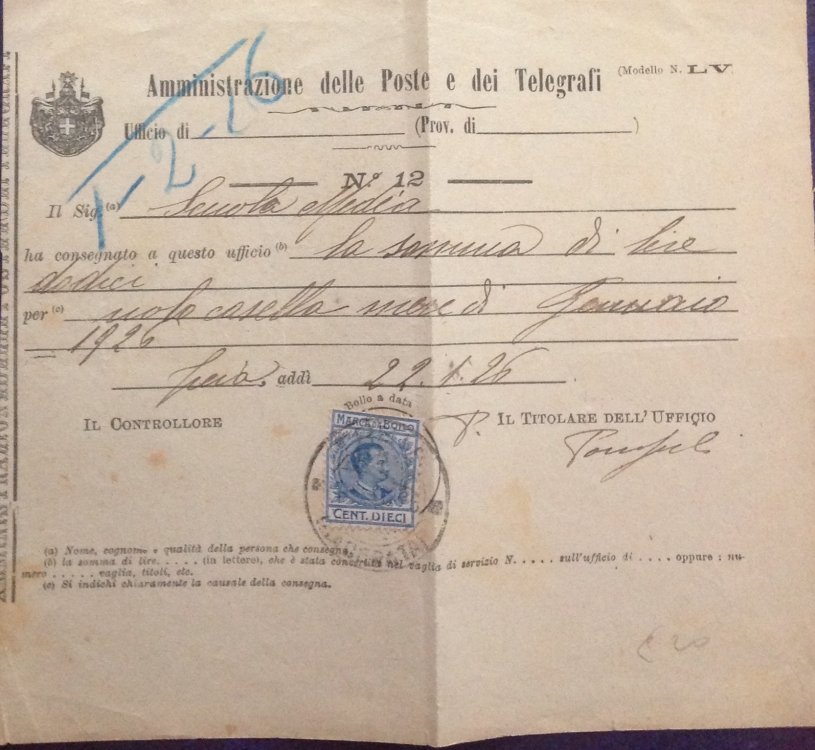 1-2-26
Amministrazione delle Poste e dei Telegrafi (Modello N. LV
Ufficio di (Prov. di )
N.° 12
Il Sig. (a) Scuola Media
ha consegnato a questo ufficio (b) la somma di lire
dodici
per (c) nolo casella mese di Gennaio
1926
addì 22.1.26
Bollo a data
IL CONTROLLORE
P. IL TITOLARE DELL'UFFICIO
MARCA DA BOLLO
CENT. DIECI
(a) Nome, cognome e qualità della persona che consegna.
(b) la somma di lire..... (in lettere), che è stata convertita nel vaglia di servizio N...... sull'ufficio di ..... oppure: nu-
mero ..... vaglia, titoli, etc.
(c) Si indichi chiaramente la causale della consegna.